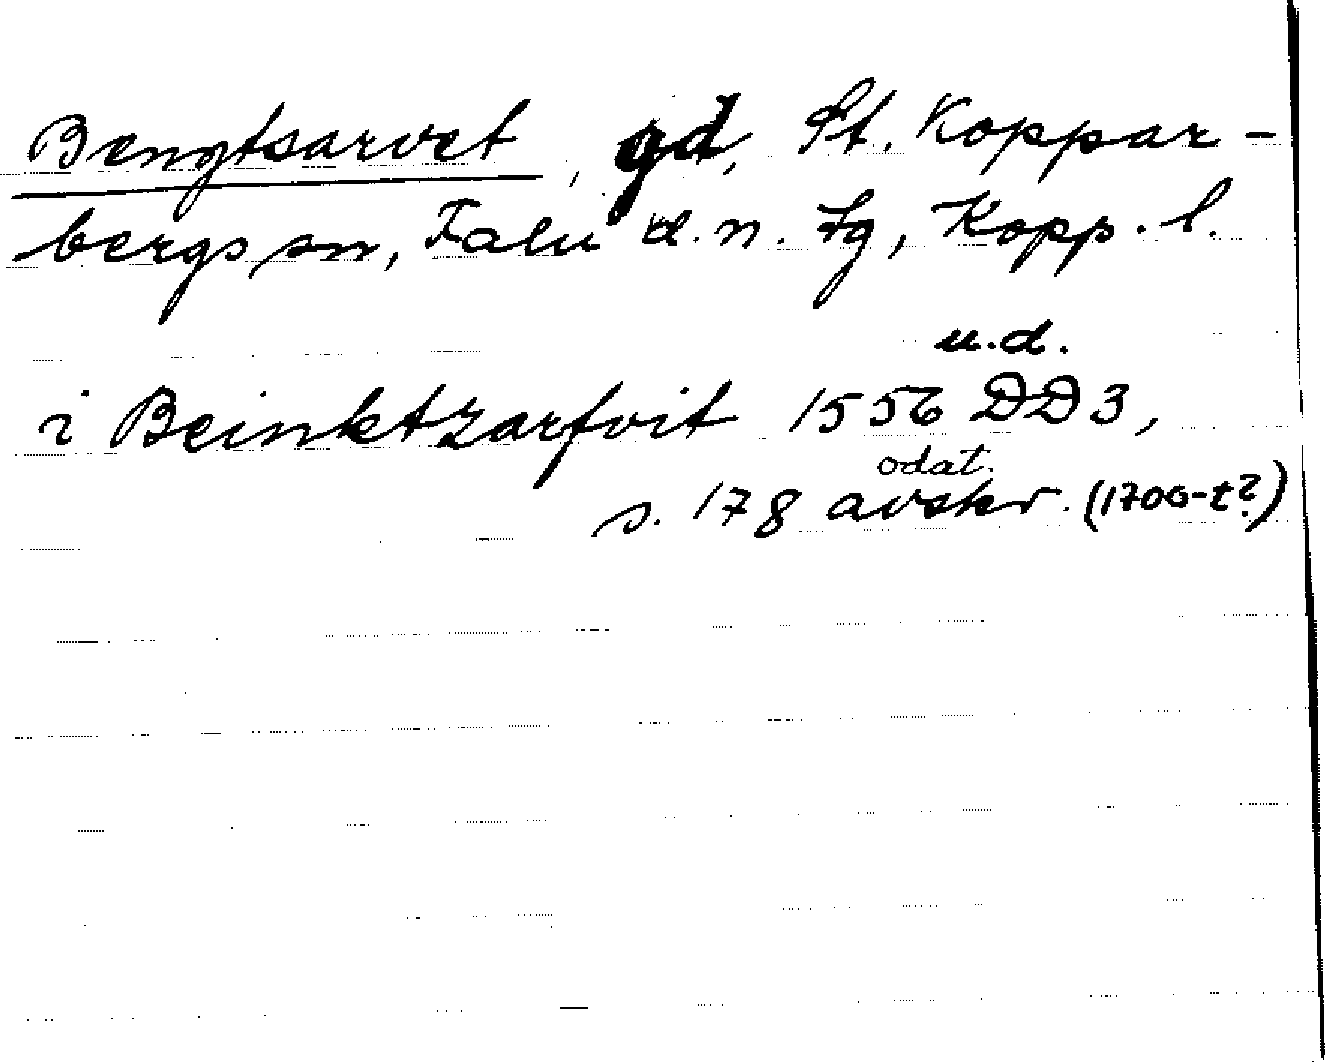 Bengtsarvet, gd, St. Koppar-
bergs sn, Falu d. n. tg, Kopp. l.
u.d.
i Beinktzarfvit 1556 DD3,
odat.
s. 178 avskr. (1700-t?)